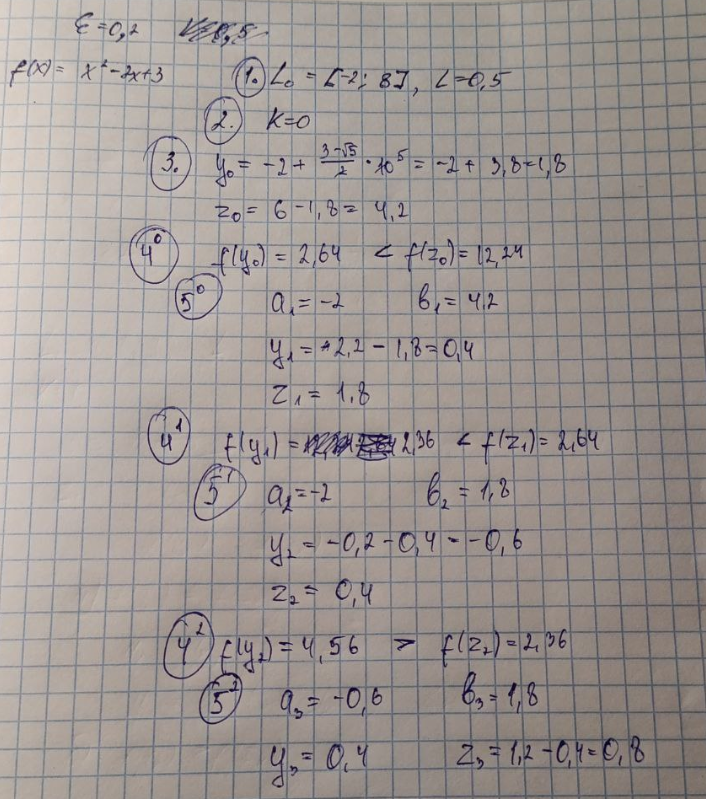 ε=0,2
f(x) = x² - 2x+3 1. L₀ = [-2; 8], L=0,5
2. K=0
3. y₀ = -2 + (3-√5)/2 · 10 = -2 + 3,8=1,8
z₀ = 6 - 1,8 = 4,2
4⁰ f(y₀) = 2,64 < f(z₀) = 12,24
5⁰ a₁ = -2 b₁ = 4,2
y₁ = +2,2 - 1,8 = 0,4
z₁ = 1,8
4¹ f(y₁) = 2,36 < f(z₁) = 2,64
5¹ a₂ = -2 b₂ = 1,8
y₂ = -0,2 - 0,4 = -0,6
z₂ = 0,4
4² f(y₂) = 4,56 > f(z₂) = 2,36
5² a₃ = -0,6 b₃ = 1,8
y₃ = 0,4 z₃ = 1,2 - 0,4 = 0,8